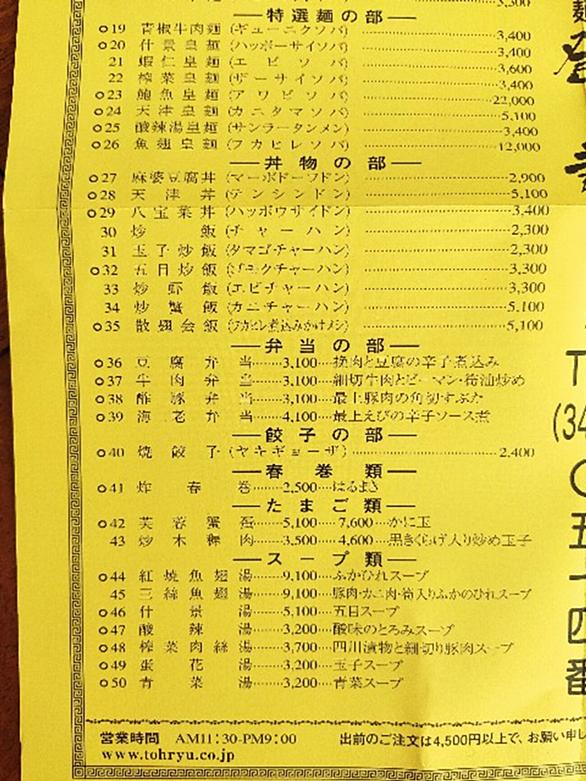 3,300
―特選麺の部―
○19 青椒牛肉麺 (ギューニクソバ) 3,400
○20 什景皇麺 (ハッポーサイソバ) 3,400
21 蝦仁皇麺 (エビソバ) 3,600
22 榨菜皇麺 (ザーサイソバ) 3,400
○23 鮑魚皇麺 (アワビソバ) 22,000
○24 天津皇麺 (カニタマソバ) 5,100
○25 酸辣湯皇麺 (サンラータンメン) 3,400
○26 魚翅皇麺 (フカヒレソバ) 12,000
―丼物の部―
○27 麻婆豆腐丼 (マーボドーフドン) 2,900
○28 天津丼 (テンシンドン) 5,100
○29 八宝菜丼 (ハッポウサイドン) 3,400
30 炒飯 (チャーハン) 2,300
31 玉子炒飯 (タマゴ・チャーハン) 2,300
○32 五目炒飯 (ゴモクチャーハン) 3,300
33 炒虾飯 (エビチャーハン) 3,300
34 炒蟹飯 (カニチャーハン) 5,100
○35 散翅会飯 (フカヒレ煮込みかけメシ) 5,100
―弁当の部―
○36 豆腐弁当 3,100 挽肉と豆腐の辛子煮込み
○37 牛肉弁当 3,100 細切牛肉とピーマン・筍油炒め
○38 酢豚弁当 3,100 最上豚肉の角切すぶた
○39 海老弁当 4,100 最上えびの辛子ソース煮
―餃子の部―
○40 焼餃子 (ヤキギョーザ) 2,400
―春巻類―
○41 炸春巻 2,500 はるまき
―たまご類―
○42 芙蓉蟹蛋 5,100 7,600 かに玉
43 炒木穉肉 3,500 4,600 黒きくらげ入り炒め玉子
―スープ類―
○44 紅焼魚翅湯 9,100 ふかひれスープ
45 三絲魚翅湯 9,100 豚肉・カニ肉・筍入りふかのひれスープ
○46 什景湯 5,100 五目スープ
○47 酸辣湯 3,200 酸味のとろみスープ
○48 榨菜肉絲湯 3,700 四川漬物と細切り豚肉スープ
○49 蛋花湯 3,200 玉子スープ
○50 青菜湯 3,200 青菜スープ
営業時間 AM11:30-PM9:00 出前のご注文は4,500円以上で、お願い申し
www.tohryu.co.jp
T
(34
〇五―四番